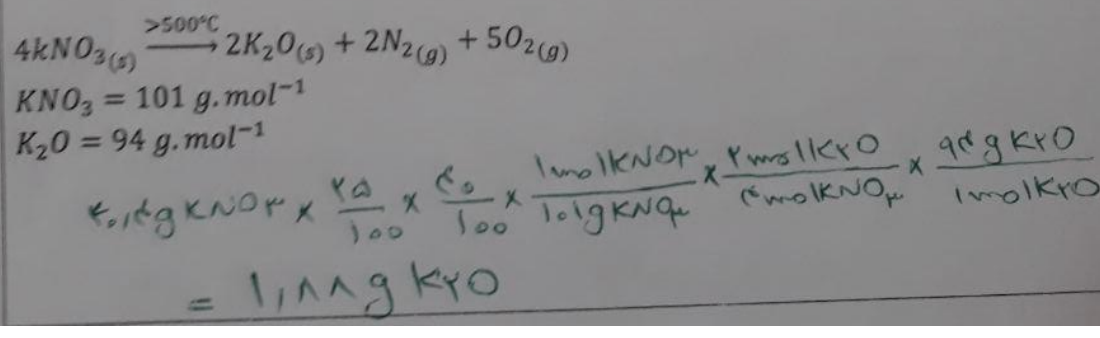 4kNO₃₍ₛ₎ >500°C⟶ 2K₂O₍ₛ₎ + 2N₂₍g₎ + 5O₂₍g₎
KNO₃ = 101 g.mol⁻¹
K₂O = 94 g.mol⁻¹
۴۰,۴g KNO۳ × ۲۵/۱۰۰ × ۴۰/۱۰۰ × ۱molKNO۳/۱۰۱gKNO۳ × ۲molK۲O/۴molKNO۳ × ۹۴gK۲O/۱molK۲O
= ۱,۸۸g K۲O